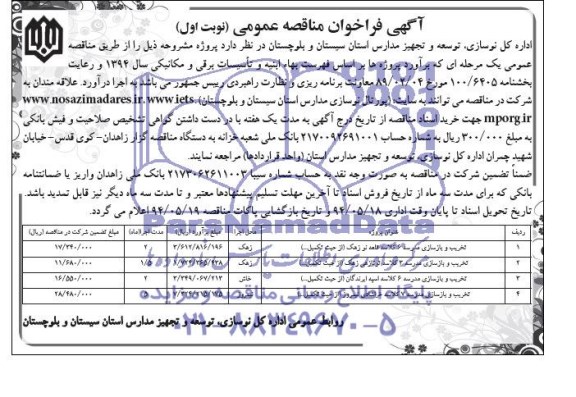 آگهی فراخوان مناقصه عمومی (نوبت اول)
اداره کل نوسازی، توسعه و تجهیز مدارس استان سیستان و بلوچستان در نظر دارد پروژه مشروحه ذیل را از طریق مناقصه
عمومی یک مرحله ای که برآورد پروژه ها بر اساس فهرست بهاء ابنیه و تأسیسات برقی و مکانیکی سال ۱۳۹۴ و رعایت
بخشنامه ۱۰۰/۶۴۰۵ مورخ ۸۹/۰۲/۰۴ معاونت برنامه ریزی و نظارت راهبردی رییس جمهور می باشد به اجرا درآورد. علاقه مندان به
شرکت در مناقصه می توانند به سایت: (پورتال نوسازی مدارس استان سیستان و بلوچستان) www.nosazimadares.ir، www.iets.
mporg.ir جهت خرید اسناد مناقصه از تاریخ درج آگهی به مدت یک هفته با در دست داشتن گواهی تشخیص صلاحیت و فیش بانکی
به مبلغ ۳۰۰/۰۰۰ ریال به شماره حساب ۲۱۷۰۰۹۲۶۹۱۰۰۱ بانک ملی شعبه خزانه به دستگاه مناقصه گزار زاهدان-کوی قدس-خیابان
شهید چمران اداره کل نوسازی، توسعه و تجهیز مدارس استان (واحد قراردادها) مراجعه نمایند.
ضمناً تضمین شرکت در مناقصه به صورت وجه نقد به حساب شماره سیبا ۲۱۷۳۰۶۲۶۱۱۰۰۳ بانک ملی زاهدان واریز یا ضمانتنامه
بانکی که برای مدت سه ماه از تاریخ فروش اسناد تا آخرین مهلت تسلیم پیشنهادها معتبر و تا مدت سه ماه دیگر نیز قابل تمدید باشد.
تاریخ تحویل اسناد تا پایان وقت اداری ۹۴/۰۵/۱۸ و تاریخ بازگشایی پاکات مناقصه ۹۴/۰۵/۱۹ اعلام می گردد.
ردیف عنوان پروژه محل اجرا مبلغ برآورد (ریال) مدت اجرا(ماه) مبلغ تضمین شرکت در مناقصه (ریال)
۱ تخریب و بازسازی مدرسه ۶ کلاسه قلعه نو زهک (از حیث تکمیل) زهک ۱۷/۳۴۰/۰۰۰
۲ تخریب و بازسازی مدرسه ۳ کلاسه زهک (از حیث تکمیل) زهک ۱/۵ ۱۱/۶۸۰/۰۰۰
۳ تخریب و بازسازی مدرسه ۶ کلاسه اسپه ایرندگان (از حیث تکمیل) خاش ۲ ۱۶/۵۵۰/۰۰۰
۴ تخریب و بازسازی مدرسه (از حیث تکمیل) ۵ ۲۸/۴۸۰/۰۰۰
روابط عمومی اداره کل نوسازی، توسعه و تجهیز مدارس استان سیستان و بلوچستان
ParsNamadData
۰۲۱-۸۸۳۴۹۶۷۰-۵